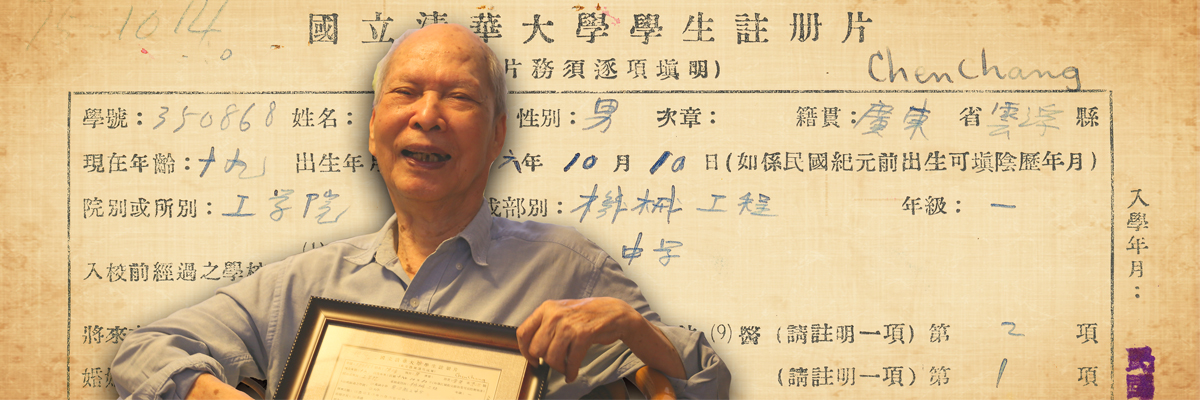 1014
國立清華大學學生註册片
片務須逐項填明)
Chen Chang
學號：350868 姓名： 性別：男 次章： 籍貫：廣東 省 雲浮 縣
現在年齡：十九 出生年月 六年 10 月 10 日(如係民國紀元前出生可填陰歷年月)
院別或所別：工学院 部別：机械工程 年級：一
中学
入校前經過之學校
入學年月：
將來 (9)醫 (請註明一項) 第 2 項
婚 (請註明一項) 第 1 項
民國